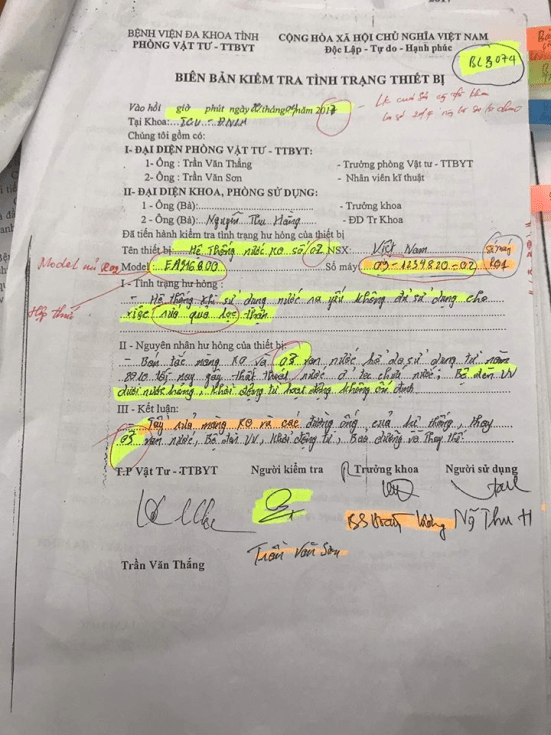 BỆNH VIỆN ĐA KHOA TỈNH
PHÒNG VẬT TƯ - TTBYT
CỘNG HÒA XÃ HỘI CHỦ NGHĨA VIỆT NAM
Độc Lập - Tự do - Hạnh phúc
BLB074
BIÊN BẢN KIỂM TRA TÌNH TRẠNG THIẾT BỊ
Vào hồi giờ phút ngày 20 tháng 04 năm 2017
Tại Khoa:
Chúng tôi gồm có:
I- ĐẠI DIỆN PHÒNG VẬT TƯ - TTBYT:
1- Ông : Trần Văn Thắng - Trưởng phòng Vật tư - TTBYT
2- Ông : Trần Văn Sơn - Nhân viên kĩ thuật
II- ĐẠI DIỆN KHOA, PHÒNG SỬ DỤNG:
1 - Ông (Bà): - Trưởng khoa
2 - Ông (Bà): Nguyễn Thu Hằng - ĐD Tr Khoa
Đã tiến hành kiểm tra tình trạng hư hỏng của thiết bị
Tên thiết bị: Hệ thống nước RO số 02 NSX: Việt Nam
Model: Số máy: 03-1234820-02
Model
I - Tình trạng hư hỏng :
- Hệ thống khi sử dụng nước ra yếu không đủ sử dụng cho
việc rửa quả lọc thận
II - Nguyên nhân hư hỏng của thiết bị:
- Bán tắc màng RO và 03 van nước hở do sử dụng từ năm
2010 tới nay gây thất thoát nước ở téc chứa nước, Bộ đèn UV
dưới nước hỏng, khởi động từ hoạt động không ổn định
III - Kết luận:
Tẩy rửa màng RO và các đường ống của hệ thống, thay
03 van nước, Bộ đèn UV, khởi động từ, Bảo dưỡng và thay thế.
T.P Vật Tư - TTBYT Người kiểm tra Trưởng khoa Người sử dụng
Trần Văn Sơn
Trần Văn Thắng